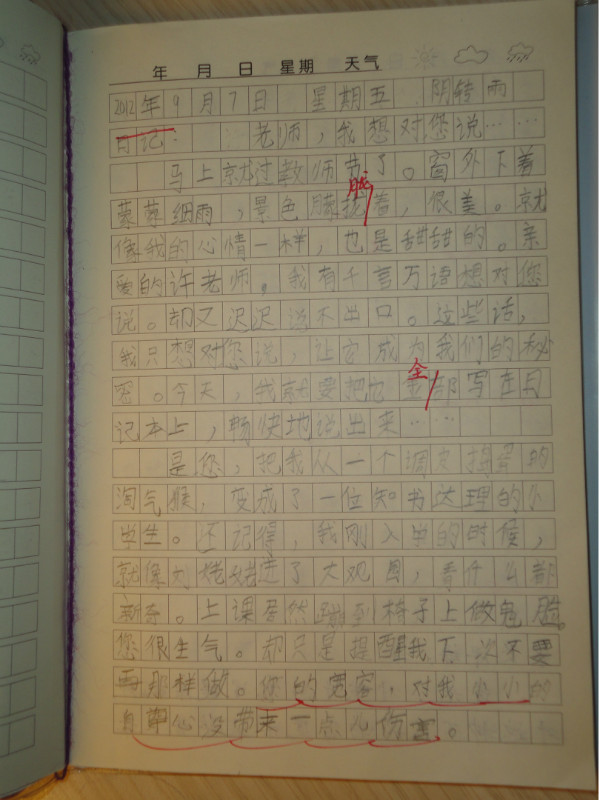 年 月 日 星期 天气
2012年9月7日 星期五 阴转雨
日记: 老师,我想对您说……
马上就过教师节了。窗外下着
蒙蒙细雨,景色朦胧着,很美。就
像我的心情一样,也是甜甜的。亲
爱的许老师。我有千言万语想对您
说。却又迟迟说不出口。这些话,
我只想对您说,让它成为我们的秘
密。今天,我就要把它全部写在日
记本上,畅快地说出来……
是您,把我从一个调皮捣蛋的
淘气猴,变成了一位知书达理的小
学生。还记得,我刚入学的时候,
就像刘姥姥进了大观园,看什么都
新奇。上课居然蹦到椅子上做鬼脸。
您很生气。却只是提醒我下次不要
再那样做。您的宽容,对我小小的
自尊心没带来一点儿伤害。